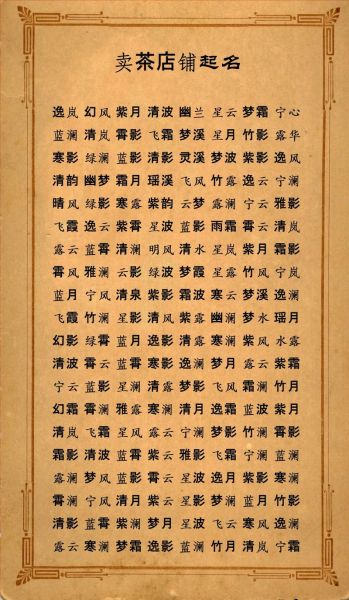 卖茶店铺起名
逸岚 幻风 紫月 清波 幽兰 星云 梦霜 宁心
蓝澜 清岚 霄影 飞霜 梦溪 星月 竹影 露华
寒影 绿澜 蓝影 清影 灵溪 梦波 紫影 逸风
清韵 幽梦 霜月 瑶溪 飞风 竹露 逸云 宁澜
晴风 绿影 寒露 紫韵 云梦 露澜 宁云 雅影
飞霞 逸云 紫霄 星波 蓝影 雨霜 霄云 清岚
露云 蓝霄 清澜 明风 清水 星岚 紫月 霜影
霄风 雅澜 云影 绿波 梦霞 星露 竹风 宁岚
蓝月 宁风 清泉 紫影 霜波 寒云 梦溪 逸澜
飞霞 竹澜 星影 清风 紫露 幽澜 梦水 瑶月
幻影 绿霄 蓝月 逸影 清露 寒澜 紫风 水露
清波 霄云 蓝霄 寒影 逸澜 梦月 露云 紫霜
宁云 蓝影 星澜 清露 梦影 飞风 霜澜 竹月
幻霜 霄澜 雅露 寒澜 清月 逸霜 蓝波 紫月
清岚 飞霜 星风 露云 宁澜 梦影 竹澜 霄影
霜影 清波 蓝霄 星云 雅影 飞霜 宁澜 蓝澜
露澜 梦风 蓝影 霄云 星波 逸月 紫影 寒澜
霄澜 宁风 清月 紫云 星影 梦澜 蓝月 竹影
清影 蓝霄 紫澜 梦月 星波 飞云 寒风 逸澜
露云 寒澜 梦霜 逸影 蓝澜 竹月 清岚 宁霜